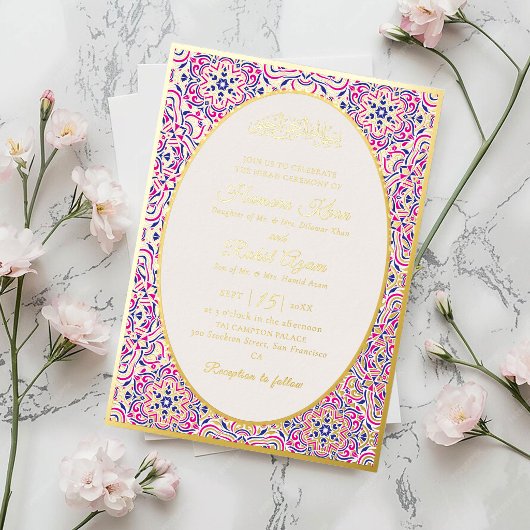 JOIN US TO CELEBRATE
THE HIJAB CEREMONY OF
Khan
Daughter of Mr. & Mrs. Dilawar Khan
and
Azam
Son of Mr. & Mrs. Hamid Azam
SEPT 15 20XX
at 3 o'clock in the afternoon
TAJ CAMPTON PALACE
300 Stockton Street, San Francisco
CA
Reception to follow